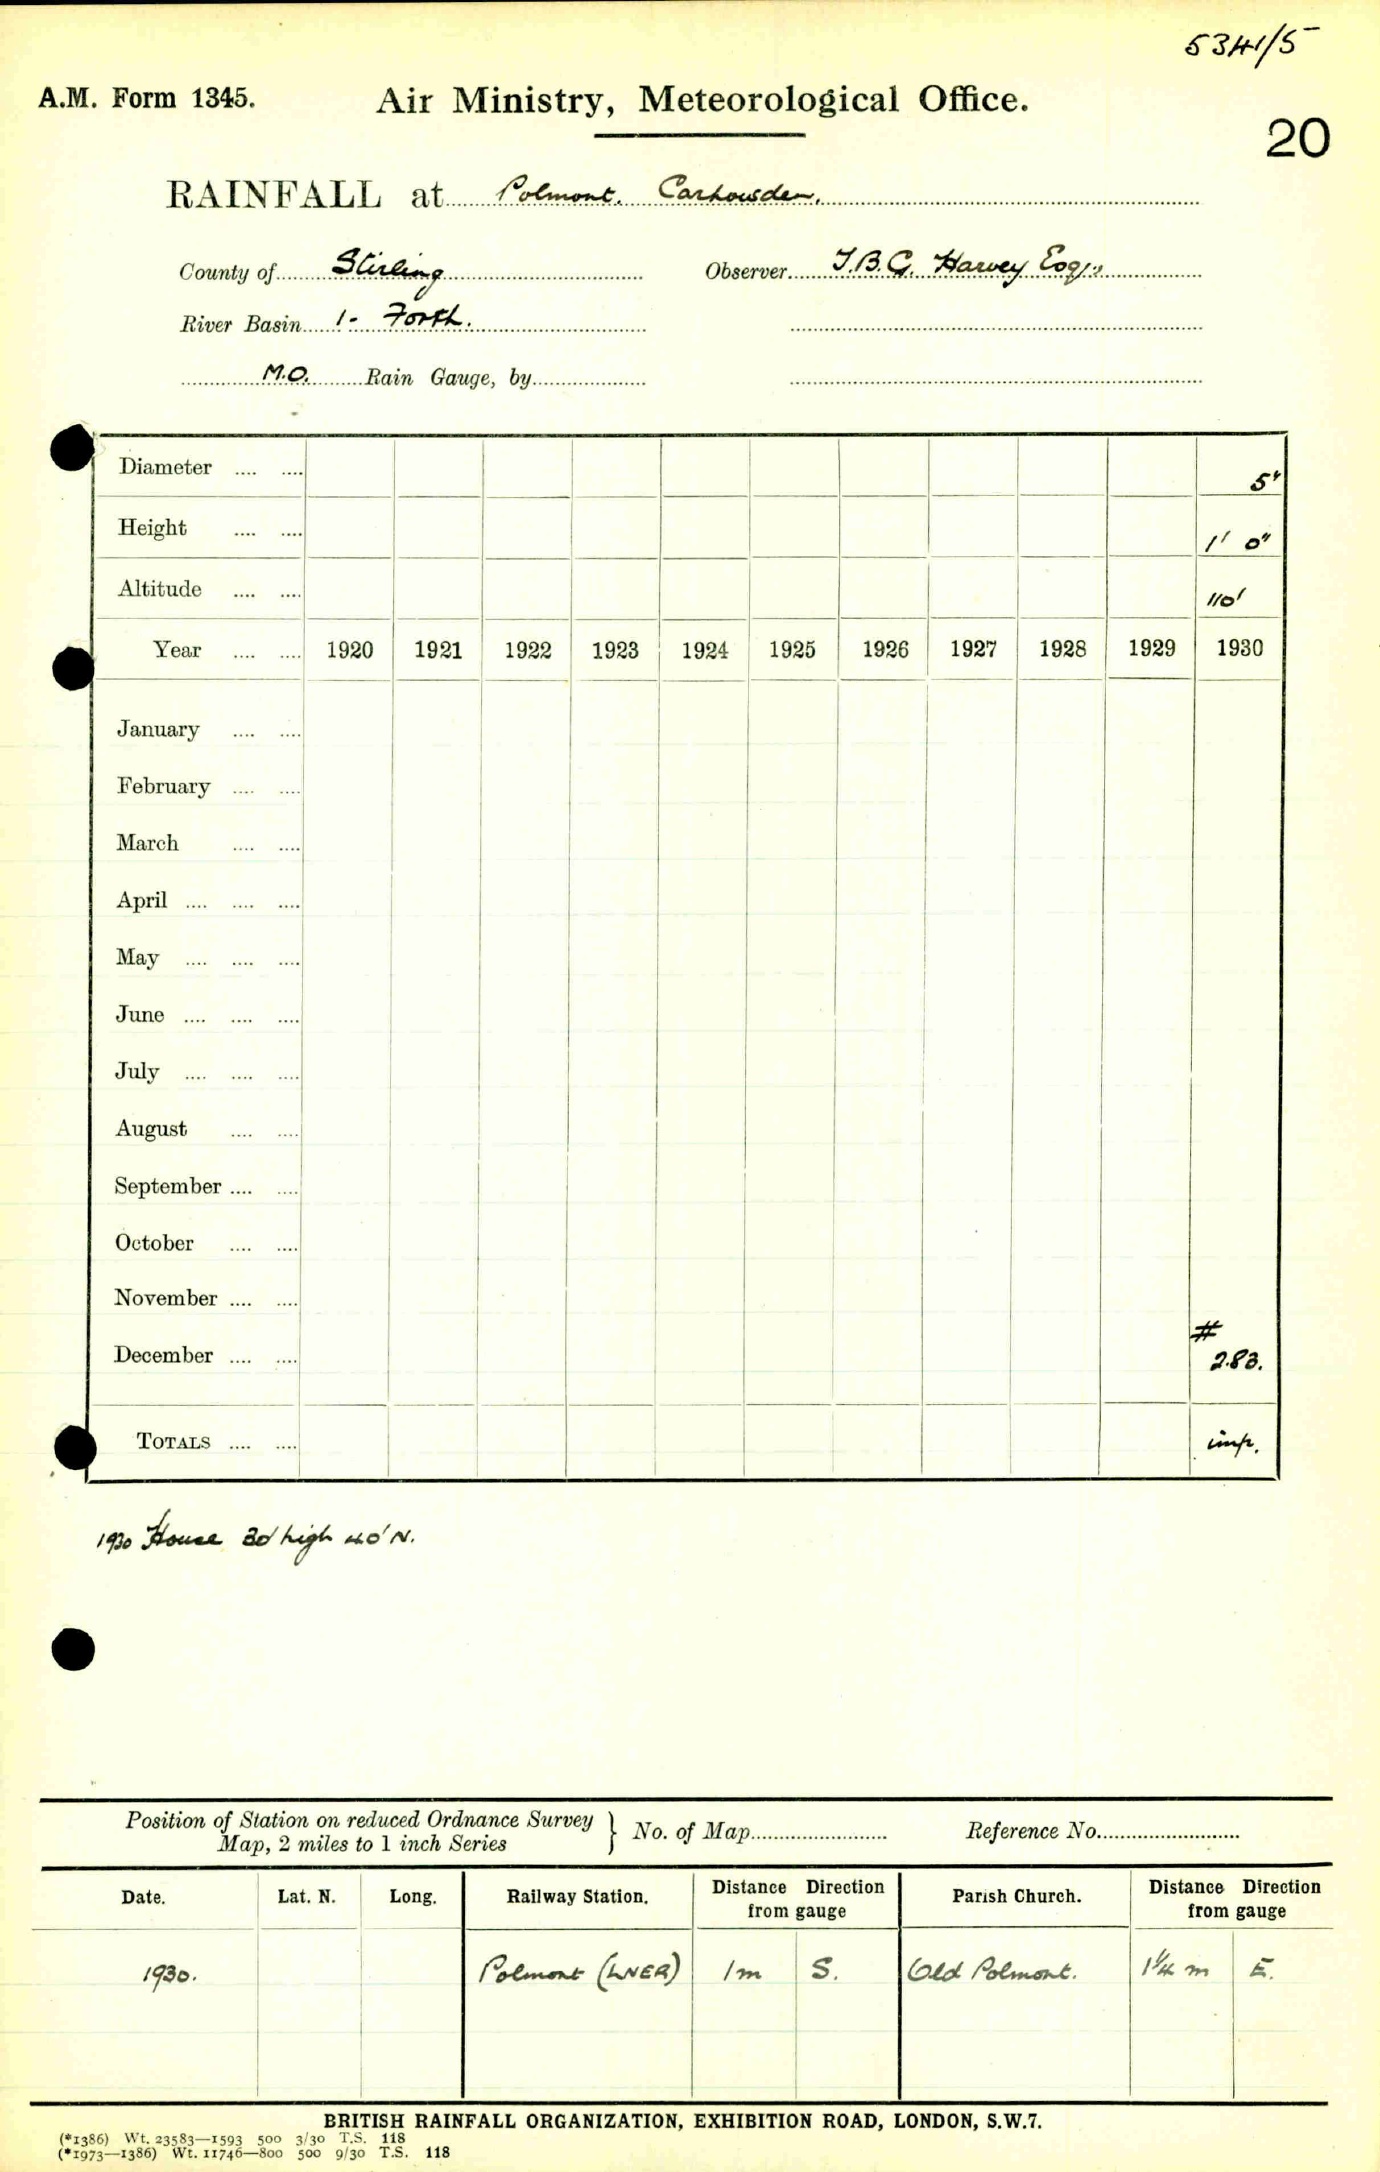 5341/5
A.M. Form 1345. Air Ministry, Meteorological Office.
20
RAINFALL at Polmont. Carhowden.
County of Stirling Observer T.B.G. Harvey Esq.,
River Basin 1- Forth.
M.O. Rain Gauge, by
Diameter .... .... 5"
Height .... .... 1' 0"
Altitude .... .... 110'
Year .... .... 1920 1921 1922 1923 1924 1925 1926 1927 1928 1929 1930
January .... ....
February .... ....
March .... ....
April .... .... ....
May .... .... ....
June .... .... ....
July .... .... ....
August .... ....
September .... ....
October .... ....
November .... ....
#
December .... .... 2.83.
TOTALS .... .... imp.
1930 House 30' high 40' N.
Position of Station on reduced Ordnance Survey
Map, 2 miles to 1 inch Series } No. of Map Reference No.
Date. Lat. N. Long. Railway Station. Distance Direction from gauge Parish Church. Distance Direction from gauge
1930. Polmont (LNER) 1 m S. Old Polmont. 1¼ m E.
BRITISH RAINFALL ORGANIZATION, EXHIBITION ROAD, LONDON, S.W.7.
(*1386) Wt. 23583—1593 500 3/30 T.S. 118
(*1973—1386) Wt. 11746—800 500 9/30 T.S. 118